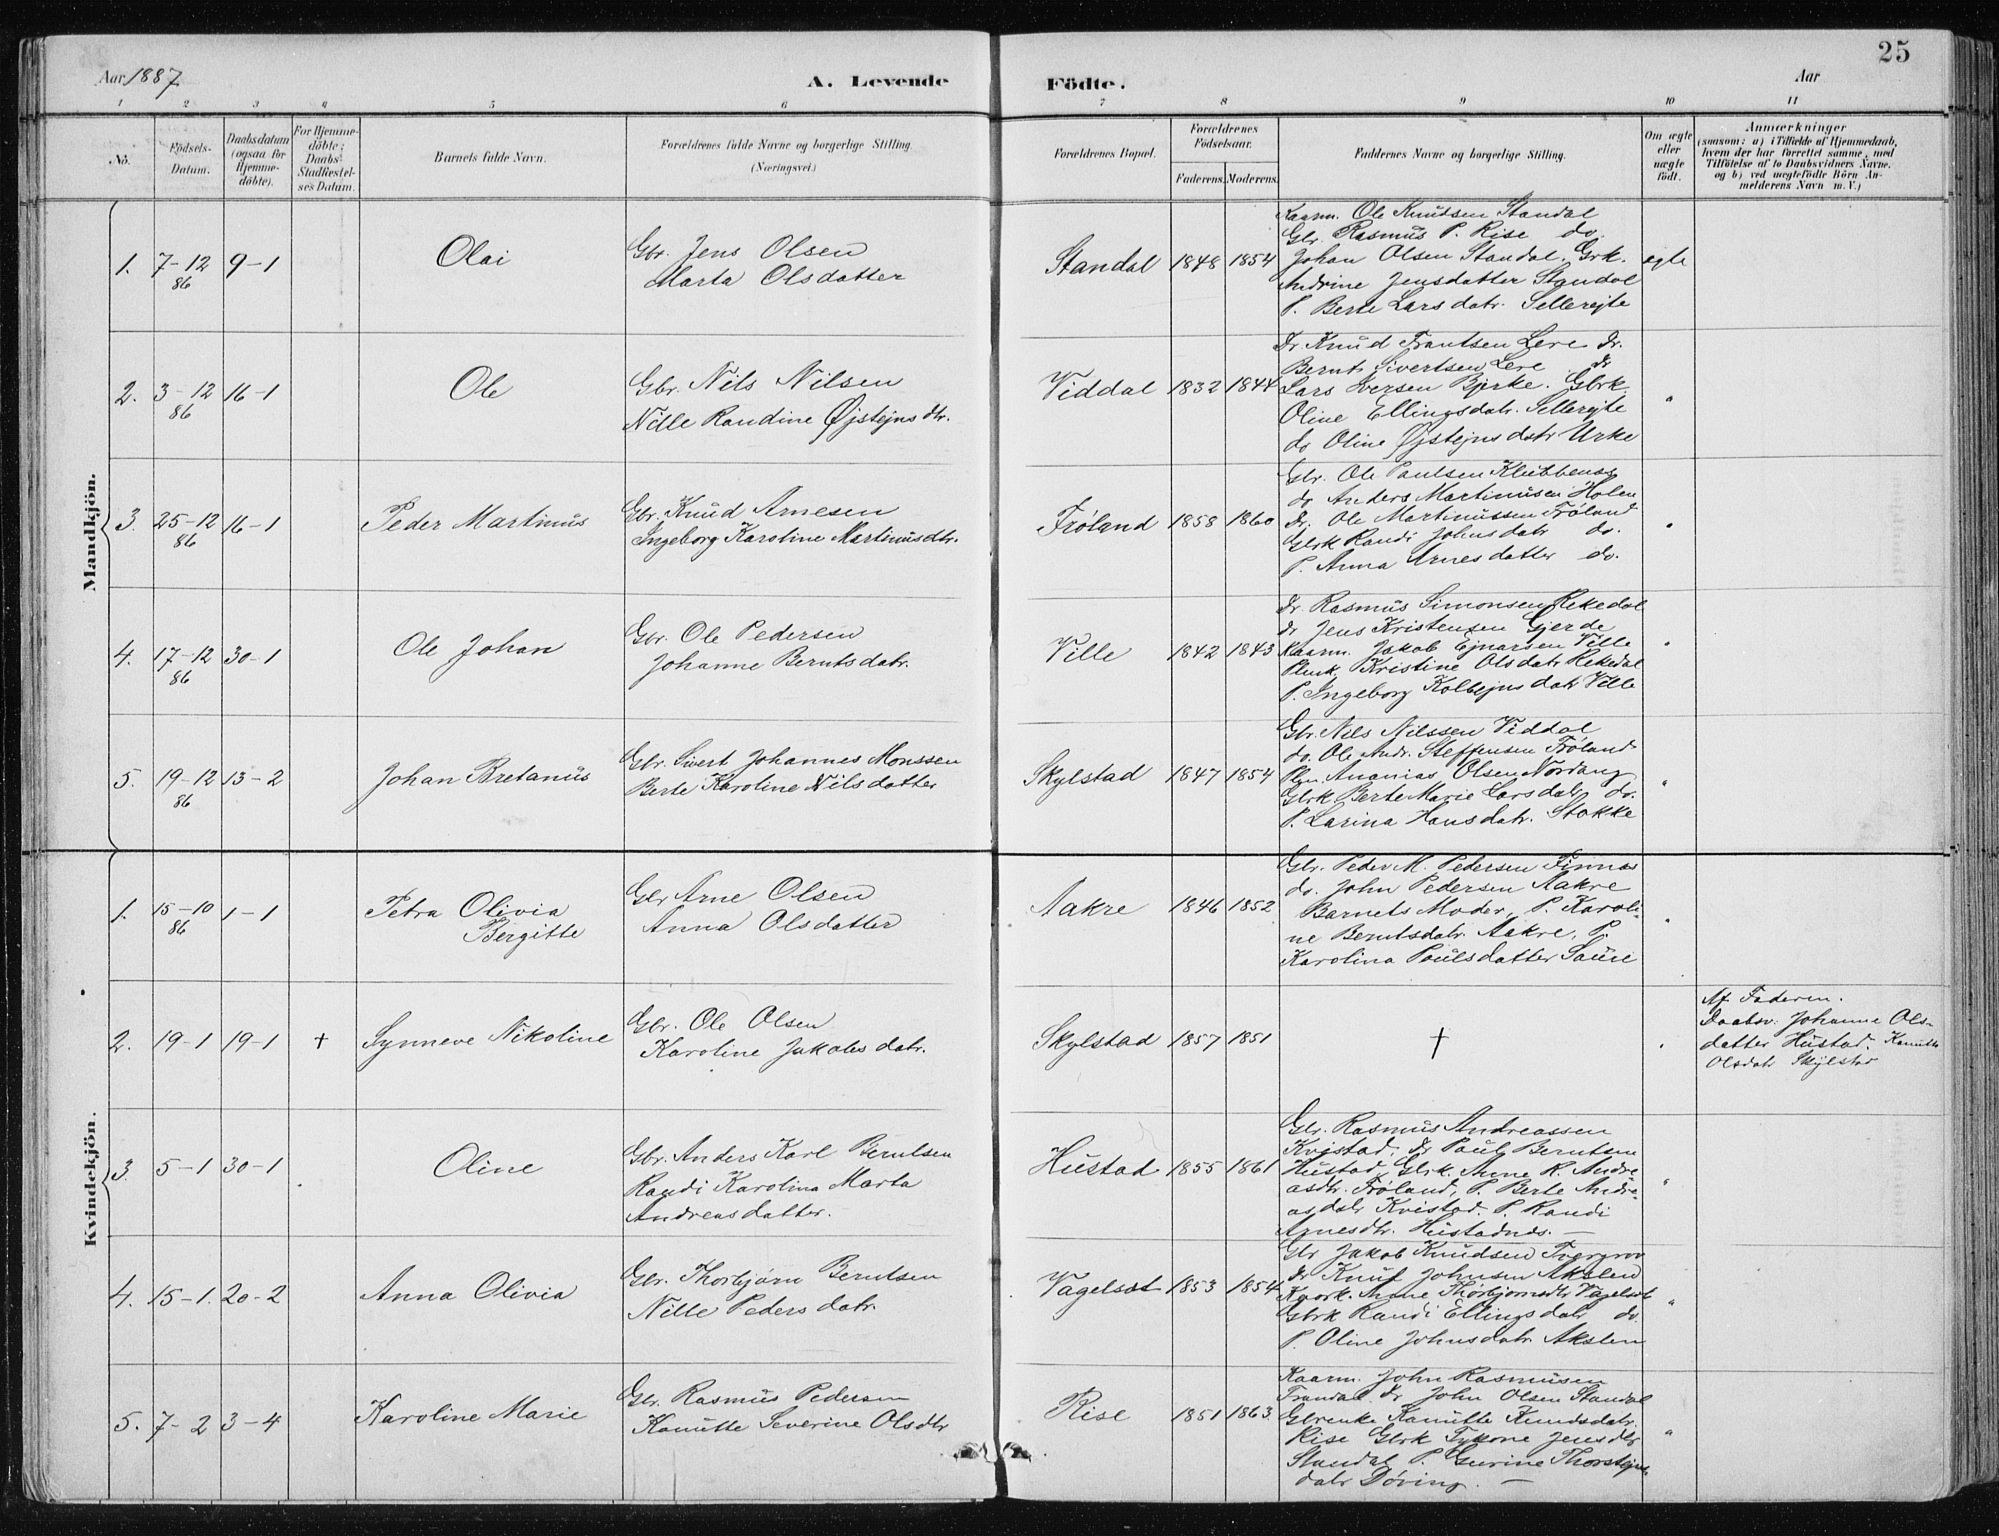 Aar 1887
A. Levende
Födte.
Aar
25
1 2 3 4 5 6 7 8 9 10 11
No.
Födsels-Datum.
Daabsdatum (ogsaa for Hjemme-döbte).
For Hjemme-döbte; Daabs-Stadfæstel-ses Datum.
Barnets fulde Navn.
Forældrenes fulde Navne og borgerlige Stilling. (Næringsvei.)
Forældrenes Bopæl.
Forældrenes Födselsaar.
Faderens. Moderens.
Faddernes Navne og borgerlige Stilling.
Om ægte eller uægte födt.
Anmærkninger
(saasom: a) i Tilfælde af Hjemmedaab, hvem der har forrettet samme, med Tilföielse af to Daabsvidners Navne, og b) ved uægtefödte Börn An-melderens Navn m. V.)
Mandkjön.
1. 7-12 86 9-1 Olai
Gbr. Jens Olsen
Marta Olsdatter
Standal 1848 1854
Kaarm. Ole Knudsen Standal
Gbr. Rasmus P. Rise do.
Johan Olsen Standal. Grk.
Andrine Jensdatter Standal
P. Berte Larsdatr. Sellerejte
ægte
2. 3-12 86 16-1 Ole
Gbr. Nils Nilsen
Nille Randine Øjstejnsdtr.
Viddal 1832 1844
Dr. Knud Frantsen Lere dr.
Bernt Sivertsen Lere dr
Lars Iversen Bjerke. Gbrk
Oline Ellingsdatr. Sellerejte
do Oline Øjstejnsdatr Urke
"
3. 25-12 86 16-1 Peder Martinus
Gbr. Knud Arnesen
Ingeborg Karoline Martinusdtr.
Frøland 1858 1860
Gbr. Ole Paulsen Klubbenes
do Anders Martinusen Holen
Dr. Ole Martinussen Frøland
Gbrk Randi Johnsdatr do.
P. Anna Arnesdatter do.
"
4. 17-12 86 30-1 Ole Johan
Gbr. Ole Pedersen
Johanne Berntsdatr.
Ville 1842 1843
Dr. Rasmus Simonsen Rekedal
dr Jens Kristensen Gjerde
Kaarm. Jakob Ejnarsen Ville
Kristine Olsdatr Rekedal
P. Ingeborg Kolbejnsdatr Ville
"
5. 19-12 86 13-2 Johan Bretanus
Gbr. Sivert Johannes Monssen
Berte Karoline Nilsdatter
Skylstad 1847 1854
Gbr. Nils Nilssen Viddal
do. Ole Andr. Steffensen Frøland
Ananias Olsen Nordang
Gbrk. Berte Marie Larsdatr do.
P. Larina Hansdatr. Stokke
"
Kvindekjön.
1. 15-10 86 1-1 Petra Olivia
Bergitte
Gbr Arne Olsen
Anna Olsdatter
Aakre 1846 1852
Gbr. Peder M. Pedersen Finnes
do. John Pedersen Aakre
Barnets Moder, P. Karoli-
ne Berntsdatr. Aakre, P.
Karolina Poulsdatter Saure
"
2. 19-1 19-1 + Synneve Nikoline
Gbr. Ole Olsen
Karoline Jakobsdatr.
Skylstad 1857 1851
+
"
Af Faderen.
Daabsv. Johanne Ols-
datter Hustad. Kanutte
Olsdatr Skylstad
3. 5-1 30-1 Oline
Gbr. Anders Karl Berntsen
Randi Karolina Marta
Andreasdatter.
Hustad 1855 1861
Gbr. Rasmus Andreassen
Kvistad, dr Paul Berntsen
Hustad, Gbrk. Anne K. Andre-
asdtr. Frøland, P. Berte Andre-
asdatr Kvistad. P. Randi
Arnesdtr. Hustadnes. —
"
4. 15-1. 20-2 Anna Olivia
Gbr. Thorbjørn Berntsen
Nille Pedersdatr.
Vagelsæt 1853 1854
Gbr Jakob Knudsen Tvergrov
dr Knut Johnsen Akslen
Kaark. Anne Thorbjornsdtr Vagelsæt
Gbrk Randi Ellingsdatr do
P. Oline Johnsdatr. Akslen
"
5. 7-2 3-4 Karoline Marie
Gbr. Rasmus Pedersen
Kanutte Severine Olsdtr
Rise 1851 1863
Kaarm. John Rasmusen
Trandal, dr John Olsen Standal
Gbrenke Kanutte Knudsdatr.
Rise Gbrk Jensdtr
Standal P. Gurine Thorstejns-
datr Døving —
"